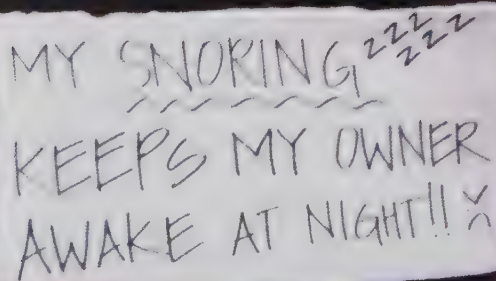 MY SNORING zzz zzz
KEEPS MY OWNER
AWAKE AT NIGHT!!